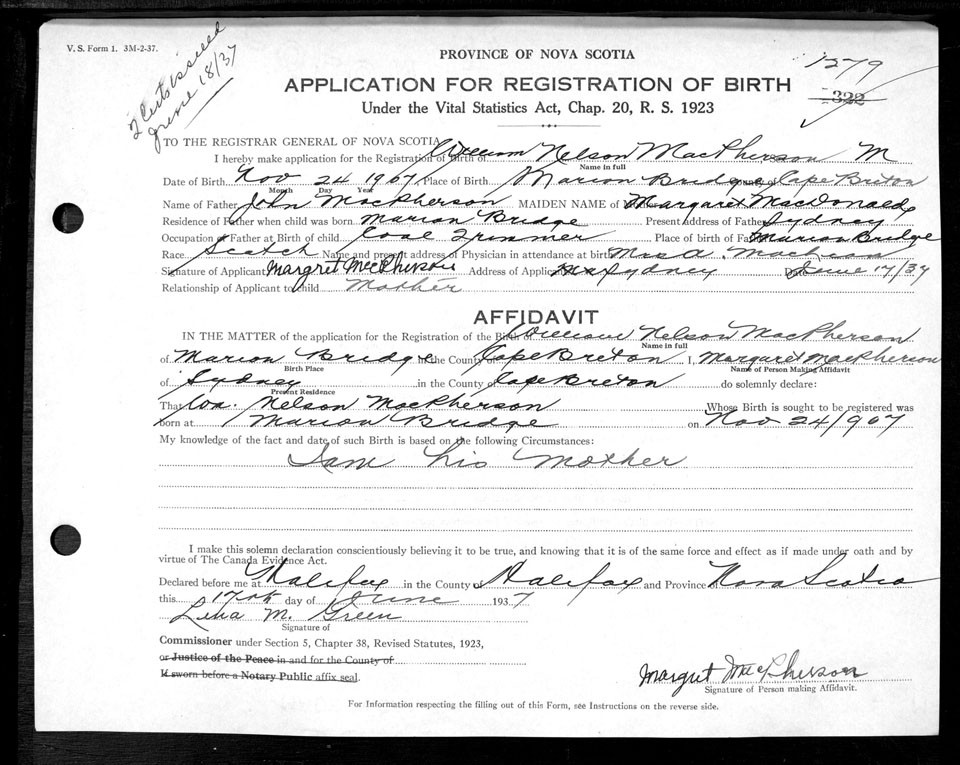 V. S. Form 1. 3M-2-37.
2 Certs issued
June 18/37
1279
322
PROVINCE OF NOVA SCOTIA
APPLICATION FOR REGISTRATION OF BIRTH
Under the Vital Statistics Act, Chap. 20, R. S. 1923
TO THE REGISTRAR GENERAL OF NOVA SCOTIA
I hereby make application for the Registration of Birth of William Nelson MacPherson M
Name in full
Date of Birth Nov 24 1907 Place of Birth Marion Bridge County of Cape Briton
Month Day Year
Name of Father John MacPherson MAIDEN NAME of Margaret MacDonald
Residence of Father when child was born Marion Bridge Present Address of Father Sydney
Occupation of Father at Birth of child Coal Trimmer Place of birth of Father Marion Bridge
Race Scotch Name and present address of Physician in attendance at birth Mrs A. MacLean
Signature of Applicant Margret MacPherson Address of Applicant Sydney Date June 17/37
Relationship of Applicant to child Mother
AFFIDAVIT
IN THE MATTER of the application for the Registration of the Birth of William Nelson MacPherson
Name in full
of Marion Bridge in the County of Cape Breton I, Margaret MacPherson
Birth Place Name of Person Making Affidavit
of Sydney in the County of Cape Breton do solemnly declare:
Present Residence
That Wm. Nelson MacPherson Whose Birth is sought to be registered was
born at Marion Bridge on Nov 24/1907
My knowledge of the fact and date of such Birth is based on the following Circumstances:
I am his mother
I make this solemn declaration conscientiously believing it to be true, and knowing that it is of the same force and effect as if made under oath and by
virtue of The Canada Evidence Act.
Declared before me at Halifax in the County of Halifax and Province Nova Scotia
this 17th day of June 1937
Lelia M. Green
Signature of
Commissioner under Section 5, Chapter 38, Revised Statutes, 1923,
or Justice of the Peace in and for the County of
If sworn before a Notary Public affix seal.
Margret MacPherson
Signature of Person making Affidavit.
For Information respecting the filling out of this Form, see Instructions on the reverse side.